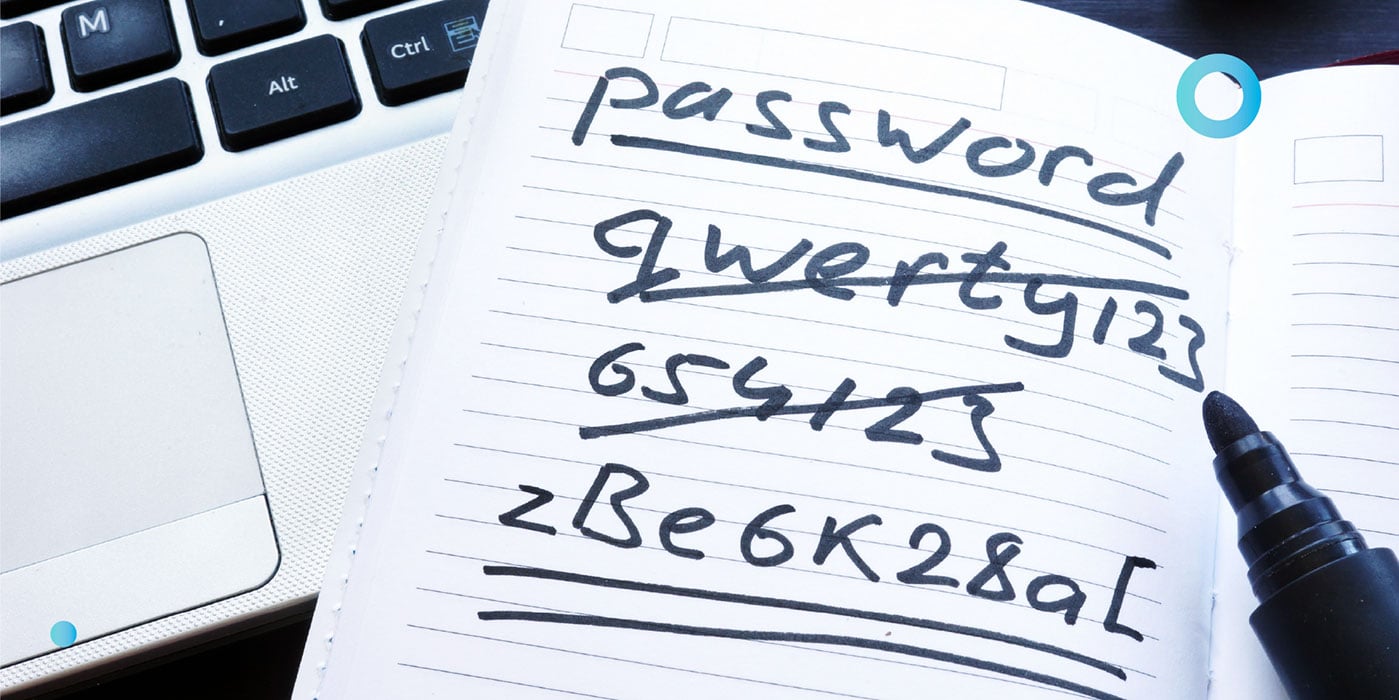 M
,
Alt
Ctrl
password
qwerty123
654123
zBe6K28a[